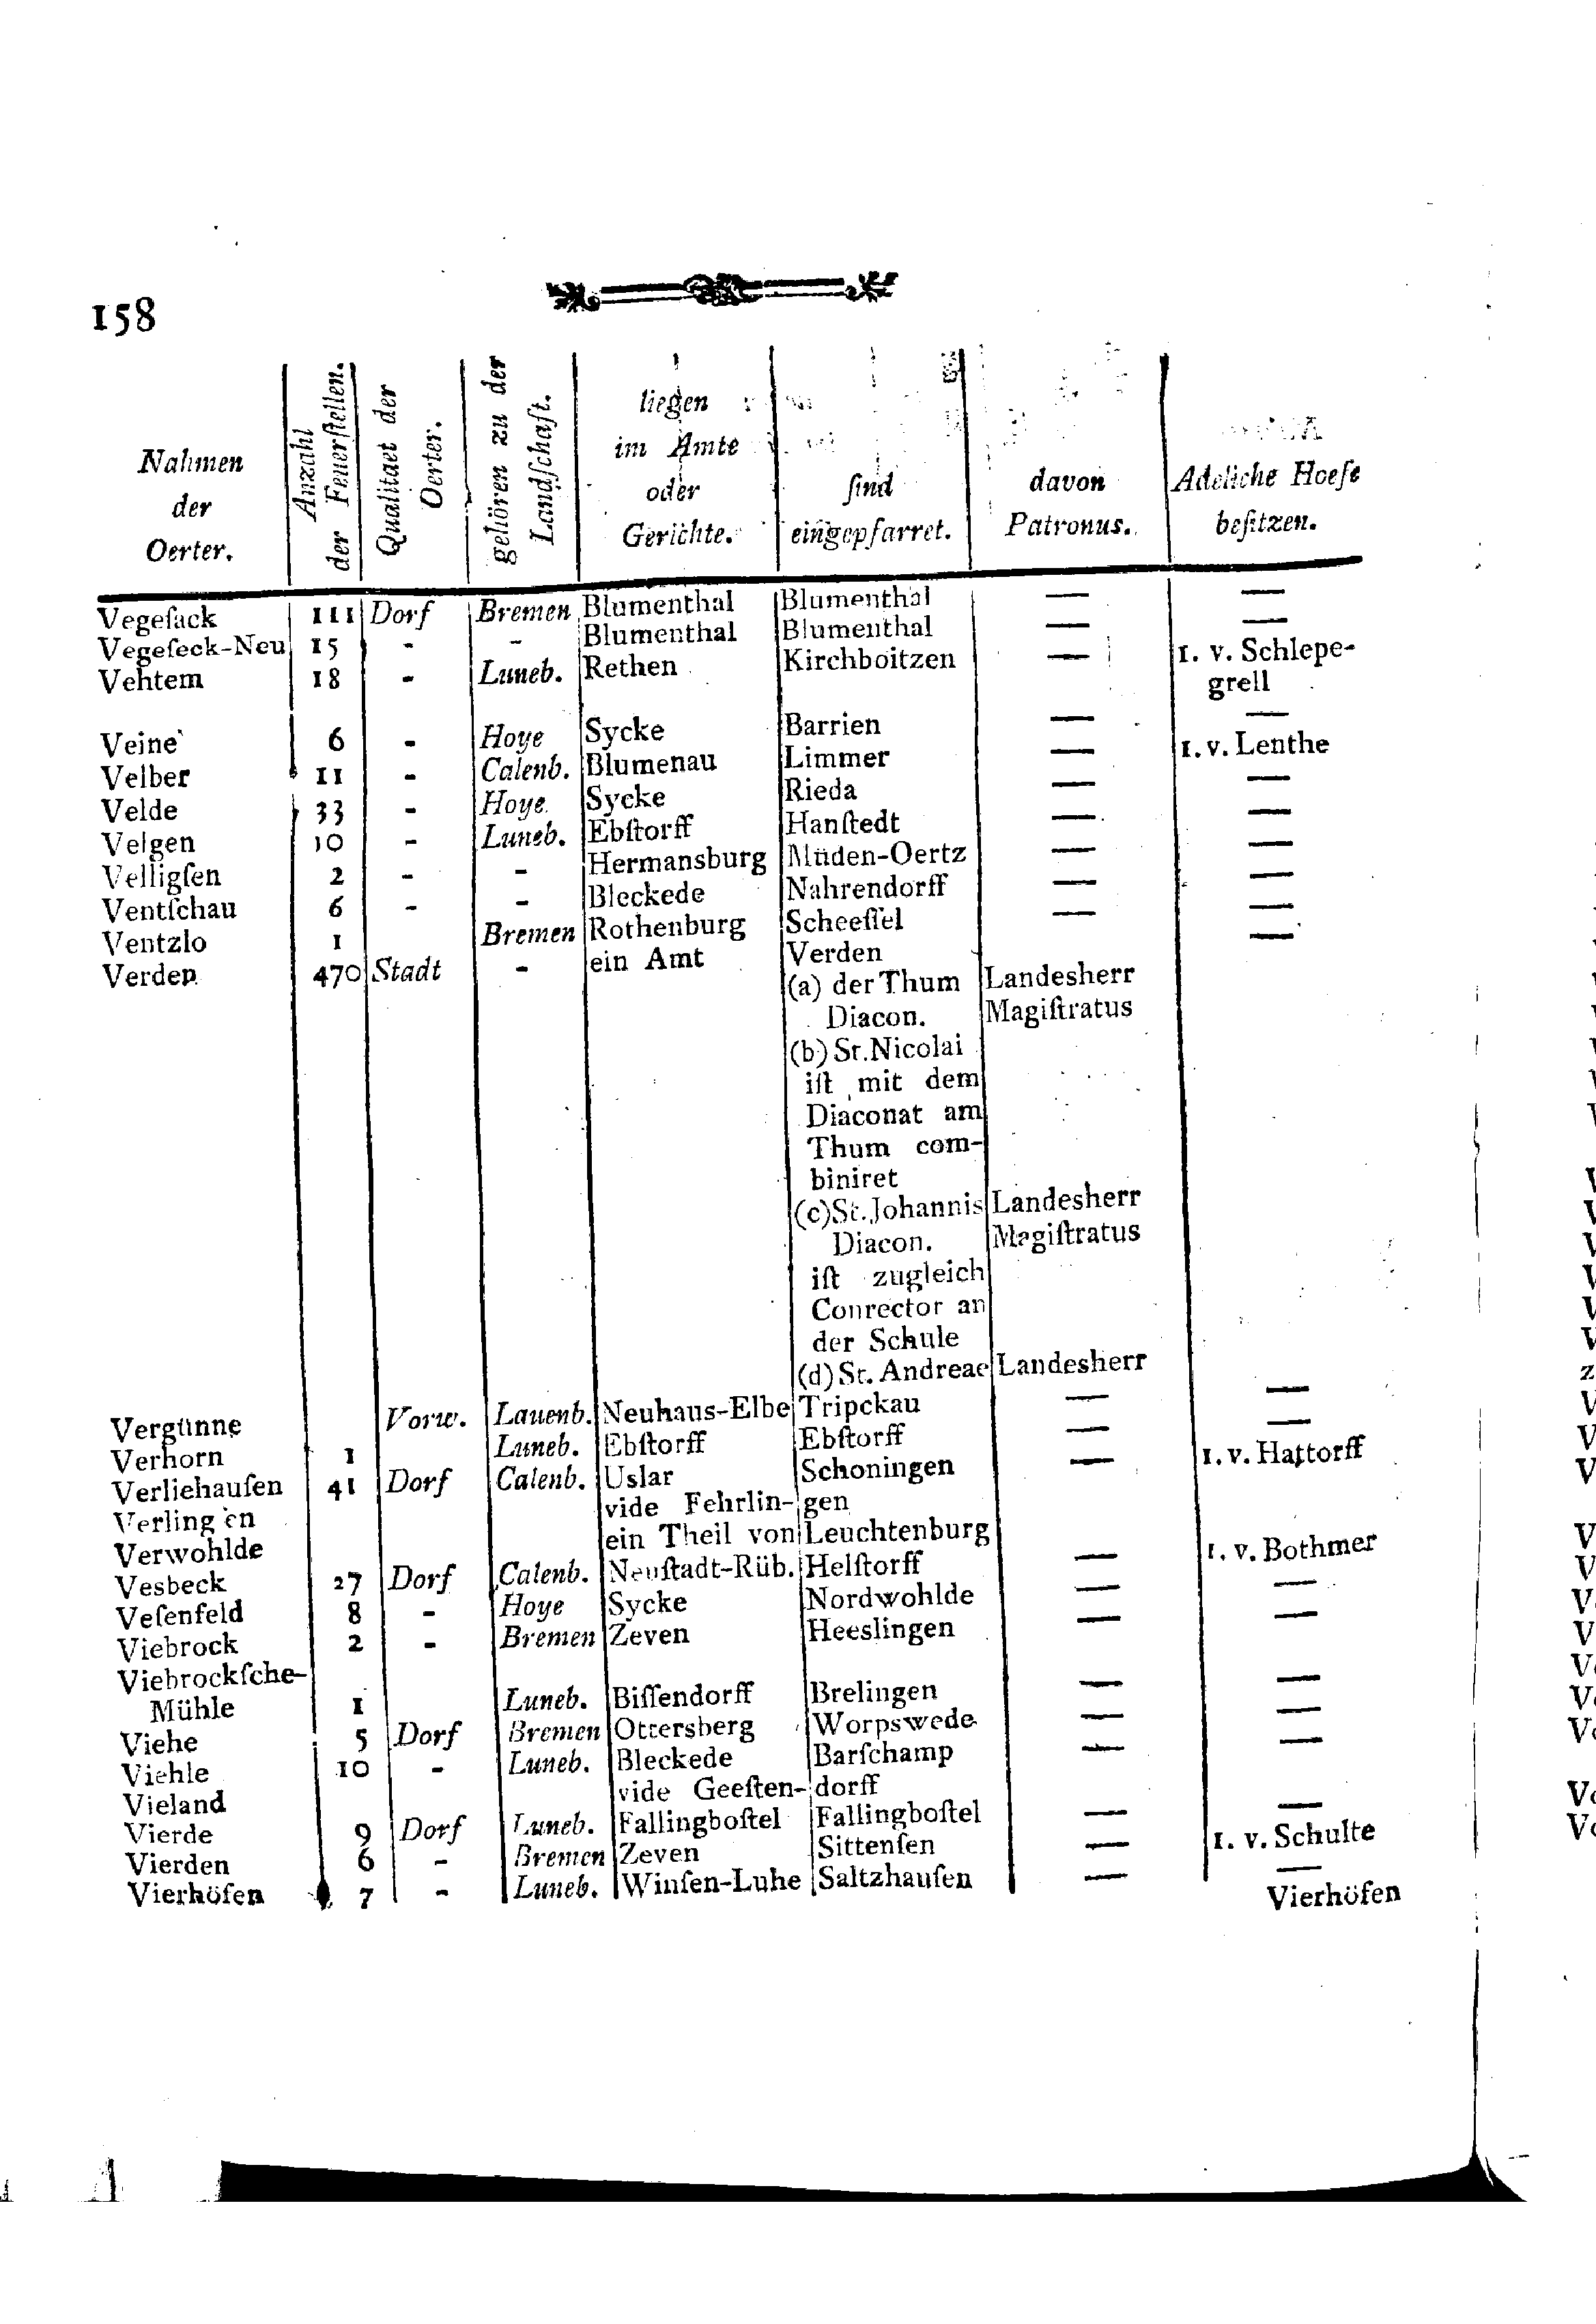 158
Nahmen der Oerter. Anzahl der Feuerſtellen. Qualitaet der Oerter. gehören zu der Landſchaft. liegen im Amte oder Gerichte. ſind eingepfarret. davon Patronus. Adeliche Hoefe beſitzen.
Vegeſack 111 Dorf Bremen Blumenthal Blumenthal — —
Vegeſeck-Neu 15 - - Blumenthal Blumenthal — —
Vehtem 18 - Luneb. Rethen Kirchboitzen — 1. v. Schlepe-
grell
Veine 6 - Hoye Sycke Barrien — —
Velber 11 - Calenb. Blumenau Limmer — 1. v. Lenthe
Velde 33 - Hoye Sycke Rieda — —
Velgen 10 - Luneb. Ebſtorff Hanſtedt — —
Velligſen 2 - - Hermansburg Müden-Oertz — —
Ventſchau 6 - - Bleckede Nahrendorff — —
Ventzlo 1 Bremen Rothenburg Scheeſſel — —
Verden 470 Stadt - ein Amt Verden —
(a) der Thum Landesherr
Diacon. Magiſtratus
(b) St. Nicolai
iſt mit dem
Diaconat am
Thum com-
biniret
(c) St. Johannis Landesherr
Diacon. Magiſtratus
iſt zugleich
Conrector an
der Schule
(d) St. Andreae Landesherr
Vergünne Vorw. Lauenb. Neuhaus-Elbe Tripckau — —
Verhorn 1 Luneb. Ebſtorff Ebſtorff — —
Verliehauſen 41 Dorf Calenb. Uslar Schoningen — 1. v. Hattorff
Verlingen vide Fehrlin-gen
Verwohlde ein Theil von Leuchtenburg
Vesbeck 27 Dorf Calenb. Neuſtadt-Rüb. Helſtorff — 1. v. Bothmer
Veſenfeld 8 - Hoye Sycke Nordwohlde — —
Viebrock 2 - Bremen Zeven Heeslingen — —
Viebrockſche-
Mühle 1 Luneb. Biſſendorff Brelingen — —
Viehe 5 Dorf Bremen Ottersberg Worpswede — —
Viehle 10 - Luneb. Bleckede Barſchamp — —
Vieland vide Geeſten-dorff
Vierde 9 Dorf Luneb. Fallingboſtel Fallingboſtel — —
Vierden 6 - Bremen Zeven Sittenſen — 1. v. Schulte
Vierhöfen 7 - Luneb. Winſen-Luhe Saltzhauſen — —
Vierhöfen